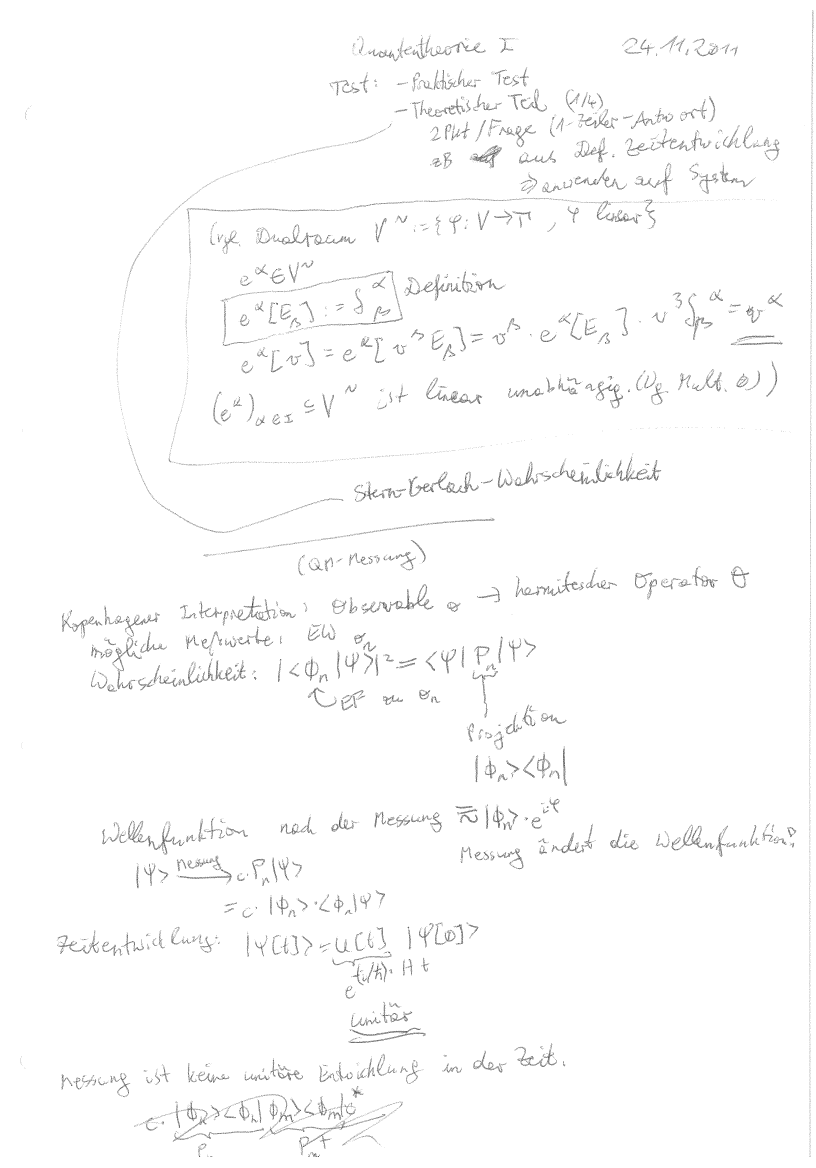 Quantentheorie I 24.11.2011
Test: - Praktischer Test
- Theoretischer Teil (1/4)
2Pkt/Frage (1-Zeiler-Antwort)
zB aus Def. Zeitentwicklung
⇒ anwenden auf System
(vgl. Dualraum V^~ := {φ: V → π, φ linear}
e^α ∈ V^~
e^α[E_β] := δ_β^α Definition
e^α[v] = e^α[v^β E_β] = v^β · e^α[E_β] · v^β δ_β^α = v^α
(e^α)_{α∈I} ⊆ V^~ ist linear unabhängig. (Vg. Mult. 0))
Stern-Gerlach-Wahrscheinlichkeit
(QM-Messung)
Kopenhagener Interpretation: Observable σ → hermitescher Operator θ
mögliche Meßwerte: EW σ_n
Wahrscheinlichkeit: |<Φ_n|Ψ>|² = <Ψ|P_n|Ψ>
EF zu σ_n
Projektion
|Φ_n><Φ_n|
Wellenfunktion nach der Messung ≂ |Φ_n> · e^{iφ}
Messung ändert die Wellenfunktion!
|Ψ> Messung→ c·P_n|Ψ>
= c·|Φ_n>·<Φ_n|Ψ>
Zeitentwicklung: |Ψ[t]> = U[t] |Ψ[0]>
e^{(i/ħ)·H t}
unitär
Messung ist keine unitäre Entwicklung in der Zeit.
c·|Φ_n><Φ_n|Φ_m><Φ_m|c*
P_n P_m+